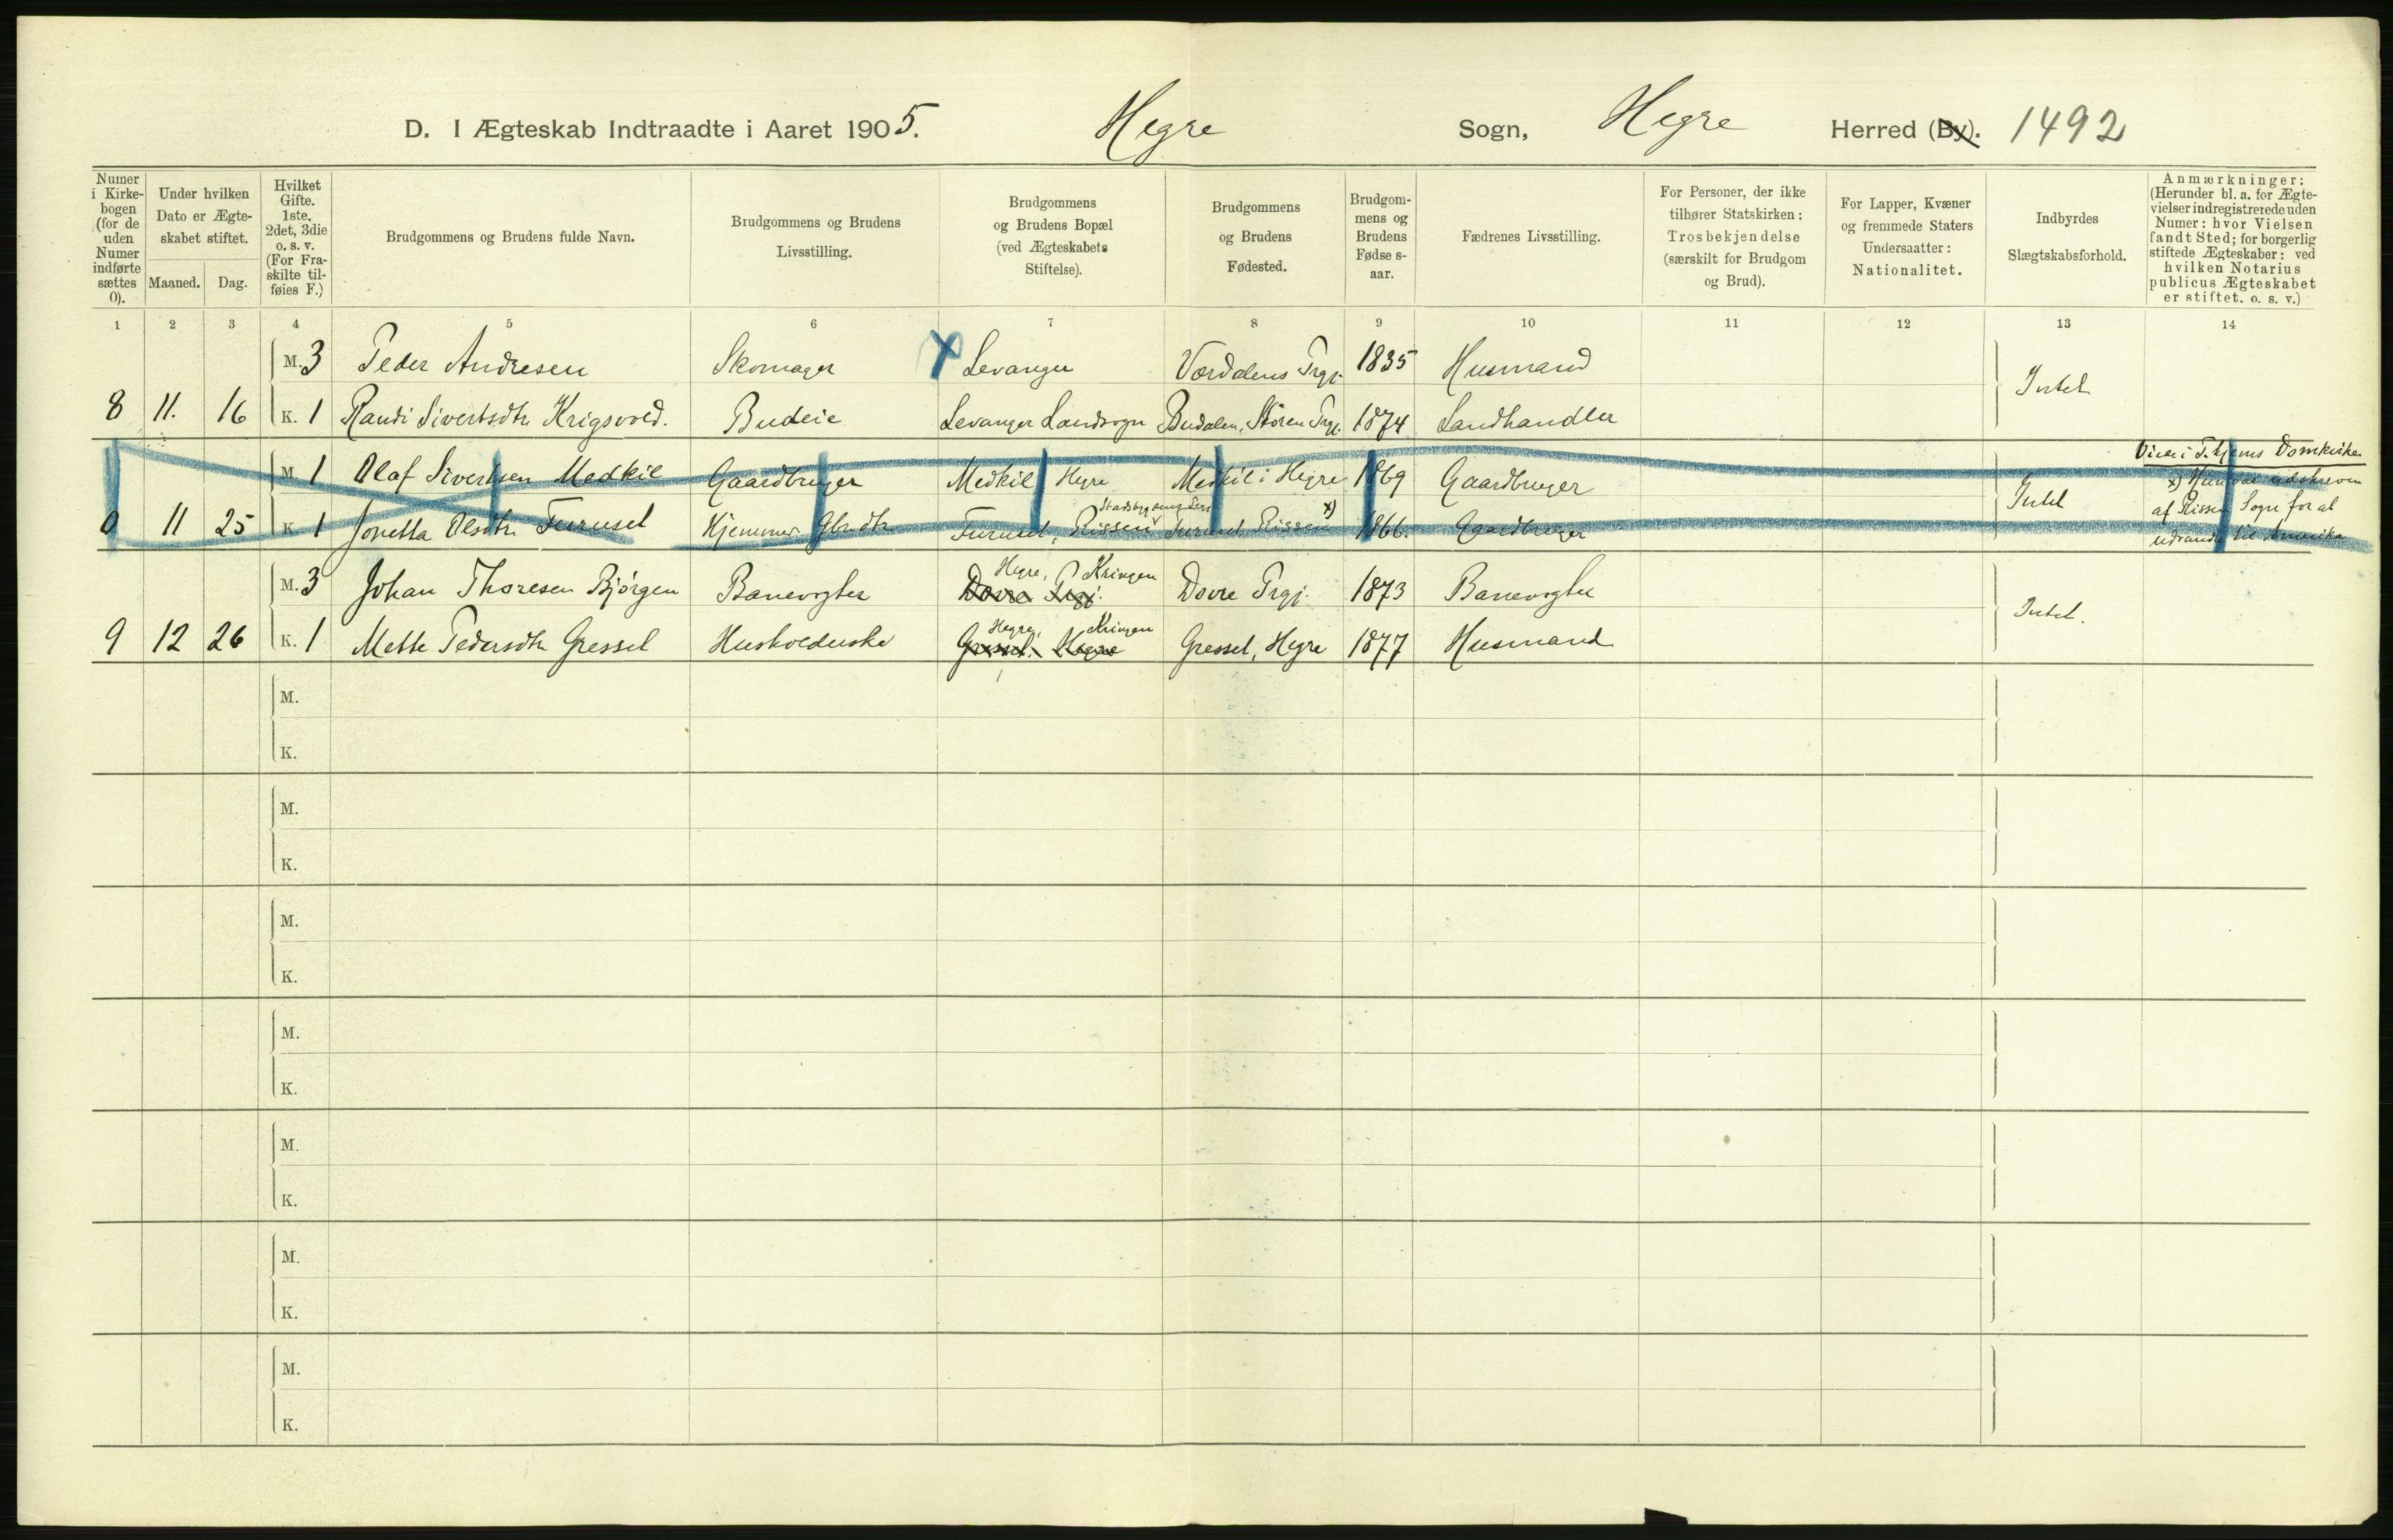 D. I Ægteskab Indtraadte i Aaret 1905. Hegre Sogn, Hegre Herred (By). 1492
Numer i Kirke-bogen (for de uden Numer indførte sættes 0).
Under hvilken Dato er Ægte-skabet stiftet.
Maaned. Dag.
Hvilket Gifte. 1ste, 2det, 3die o. s. v. (For Fra-skilte til-føies F.)
Brudgommens og Brudens fulde Navn.
Brudgommens og Brudens Livsstilling.
Brudgommens og Brudens Bopæl (ved Ægteskabets Stiftelse).
Brudgommens og Brudens Fødested.
Brudgom-mens og Brudens Fødse s-aar.
Fædrenes Livsstilling.
For Personer, der ikke tilhører Statskirken: Trosbekjendelse (særskilt for Brudgom og Brud).
For Lapper, Kvæner og fremmede Staters Undersaatter: Nationalitet.
Indbyrdes Slægtskabsforhold.
Anmærkninger: (Herunder bl. a. for Ægte-vielser indregistrerede uden Numer: hvor Vielsen fandt Sted; for borgerlig stiftede Ægteskaber: ved hvilken Notarius publicus Ægteskabet er stiftet. o. s. v.)
1 2 3 4 5 6 7 8 9 10 11 12 13 14
M. 3 Peder Andresen Skomager X Levanger Værdalens Prgj. 1835 Husmand
Intet
8 11. 16 K. 1 Randi Sivertsdtr. Krigsvold. Budeie Levanger Landsogn Budalen, Støren Prgj. 1874 Landhandler
Viet i T.hjems Domkirke
M. 1 Olaf Sivertsen Medkil Gaardbruger Medkil Hegre Medkil i Hegre 1869 Gaardbruger
x) Hun var udskreven
Intet
af Rissen Sogn for at
0 11 25 K 1 Jonetta Olsdtr. Furuset Hjemmev. Gbrdtr. Furuset, Rissen Furuset, Rissen x) 1866. Gaardbruger
udvandre til Amerika
Hegre, Kringen
M. 3 Johan Thoresen Bjørgen Banevogter Dovre Prgj. Dovre Prgj. 1873 Banevogter
Intet.
Hegre, Kringen
9 12 26 K. 1 Mette Pedersdtr. Gresset Husholderske Gresset. Hegre Gresset, Hegre 1877 Husmand
M.
K.
M.
K.
M.
K.
M.
K.
M.
K.
M.
K.
M.
K.